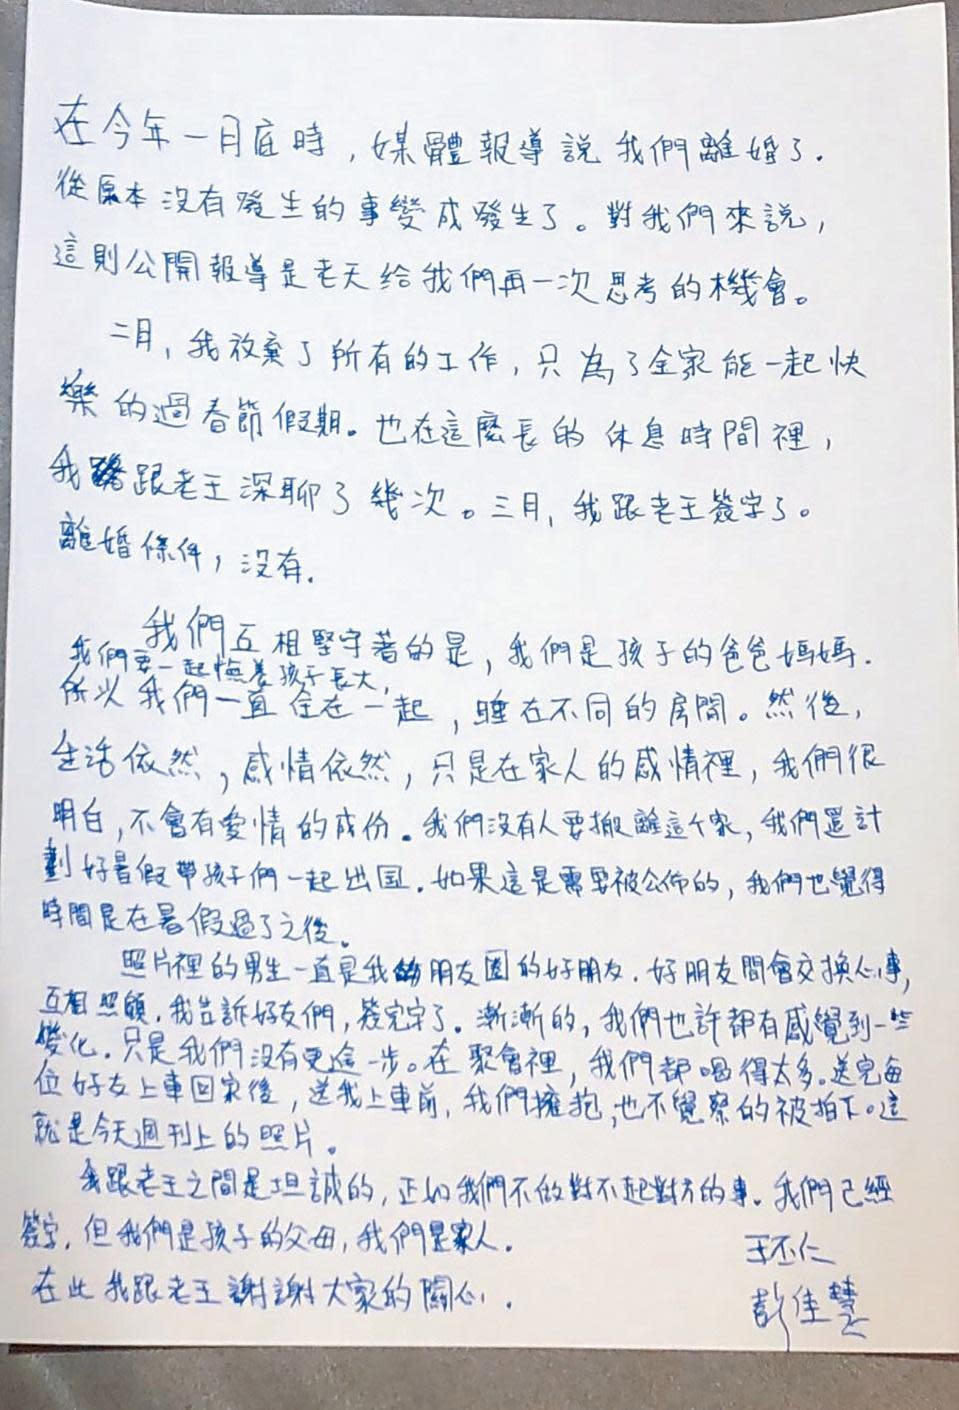 在今年一月底時，媒體報導說我們離婚了.
從原本沒有發生的事變成發生了。對我們來說，
這則公開報導是老天給我們再一次思考的機會。
二月，我放棄了所有的工作，只為了全家能一起快
樂的過春節假期。也在這麼長的休息時間裡，
我跟老王深聊了幾次。三月，我跟老王簽字了。
離婚條件，沒有.
我們互相堅守著的是，我們是孩子的爸爸媽媽.
我們要一起撫養孩子長大，
所以我們一直住在一起，睡在不同的房間。然後，
生活依然，感情依然，只是在家人的感情裡，我們很
明白，不會有愛情的成份。我們沒有人要搬離這个家，我們還計
劃好暑假帶孩子們一起出国．如果這是需要被公佈的，我們也覺得
時間是在暑假過了之後。
照片裡的男生一直是我朋友圈的好朋友．好朋友間會交換心事，
互相照顧．我告訴好友們，簽完字了．漸漸的，我們也許都有感覺到一些
變化．只是我們沒有更進一步。在聚會裡，我們都喝得太多。送完每
位好友上車回家後，送我上車前，我們擁抱，也不覺察的被拍下。這
就是今天週刊上的照片。
我跟老王之間是坦誠的，正如我們不做對不起對方的事．我們已經
簽字，但我們是孩子的父母，我們是家人．
在此我跟老王謝謝大家的關心．
王丕仁
彭佳慧